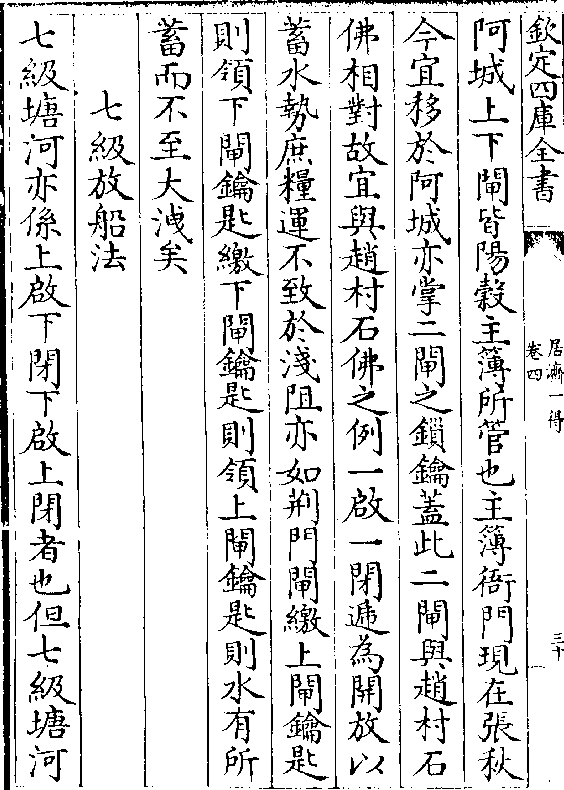 欽定四庫全書
居濟一得
卷四
三十
阿城上下閘皆陽穀主簿所管也主簿衙門現在張秋
今宜移於阿城亦掌二閘之鎖鑰蓋此二閘與趙村石
佛相對故宜與趙村石佛之例一啟一閉遞為開放以
蓄水勢庶糧運不致於淺阻亦如荆門閘繳上閘鑰匙
則領下閘鑰匙繳下閘鑰匙則領上閘鑰匙則水有所
蓄而不至大洩矣
七級放船法
七級塘河亦係上啟下閉下啟上閉者也但七級塘河